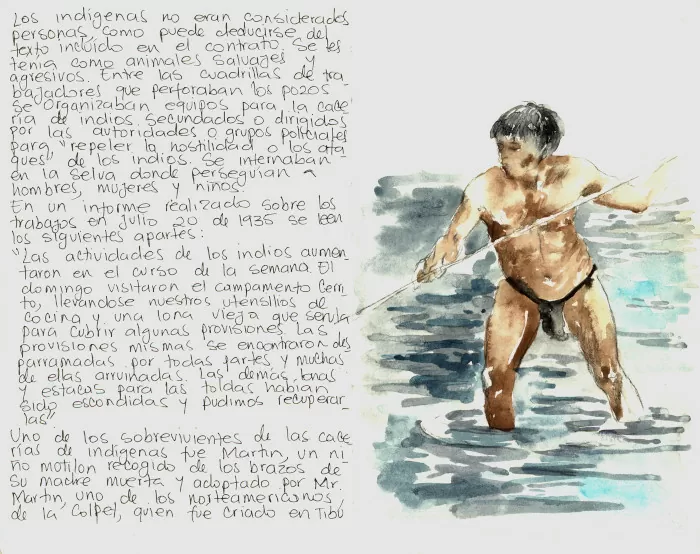 Los indígenas no eran considerados
personas, como puede deducirse del
texto incluido en el contrato. Se les
tenía como animales salvajes y
agresivos. Entre las cuadrillas de tra-
bajadores que perforaban los pozos
se organizaban equipos para la cace-
ría de indios. Secundados o dirigidos
por las autoridades o grupos policiales
para "repeler la hostilidad o los ata-
ques" de los indios. Se internaban
en la selva donde perseguían a
hombres, mujeres y niños.
En un informe realizado sobre los
trabajos en julio 20 de 1935 se leen
los siguientes apartes:
"Las actividades de los indios aumen-
taron en el curso de la semana. El
domingo visitaron el campamento Cerri-
to, llevándose nuestros utensilios de
cocina y una lona vieja que servía
para cubrir algunas provisiones. Las
provisiones mismas se encontraron des-
parramadas por todas partes y muchas
de ellas arruinadas. Las demás lonas
y estacas para las toldas habían
sido escondidas y pudimos recuperar-
las"
Uno de los sobrevivientes de las cace-
rías de indígenas fue Martín, un ni-
ño motilón recogido de los brazos de
su madre muerta y adoptado por Mr.
Martin, uno de los norteamericanos
de la Colpet, quien fue criado en Tibú